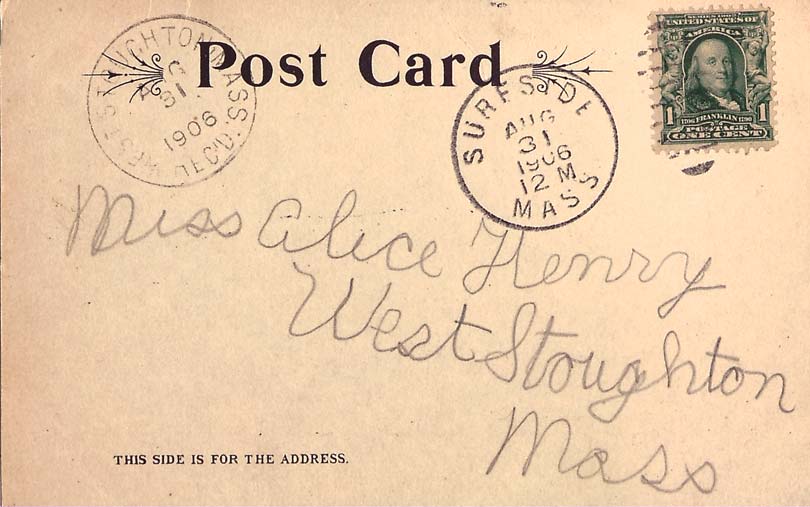 Post Card
WEST STOUGHTON, MASS. REC'D.
AUG
31
1906
SURFSIDE
AUG
31
1906
12 M
MASS
SERIES 1902
UNITED STATES OF
AMERICA
1 1706 FRANKLIN 1790 1
POSTAGE
ONE CENT
Miss Alice Henry
West Stoughton
Mass
THIS SIDE IS FOR THE ADDRESS.